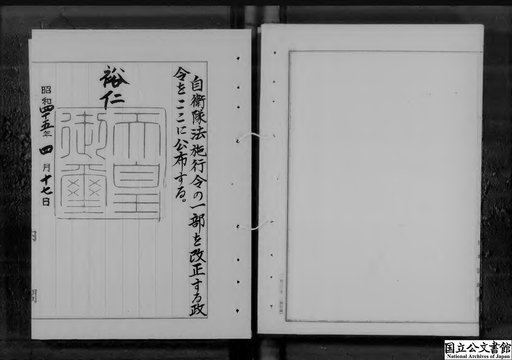 自衛隊法施行令の一部を改正する政
令をここに公布する。
裕仁
天皇
御璽
昭和四十五年四月十七日
国立公文書館
National Archives of Japan